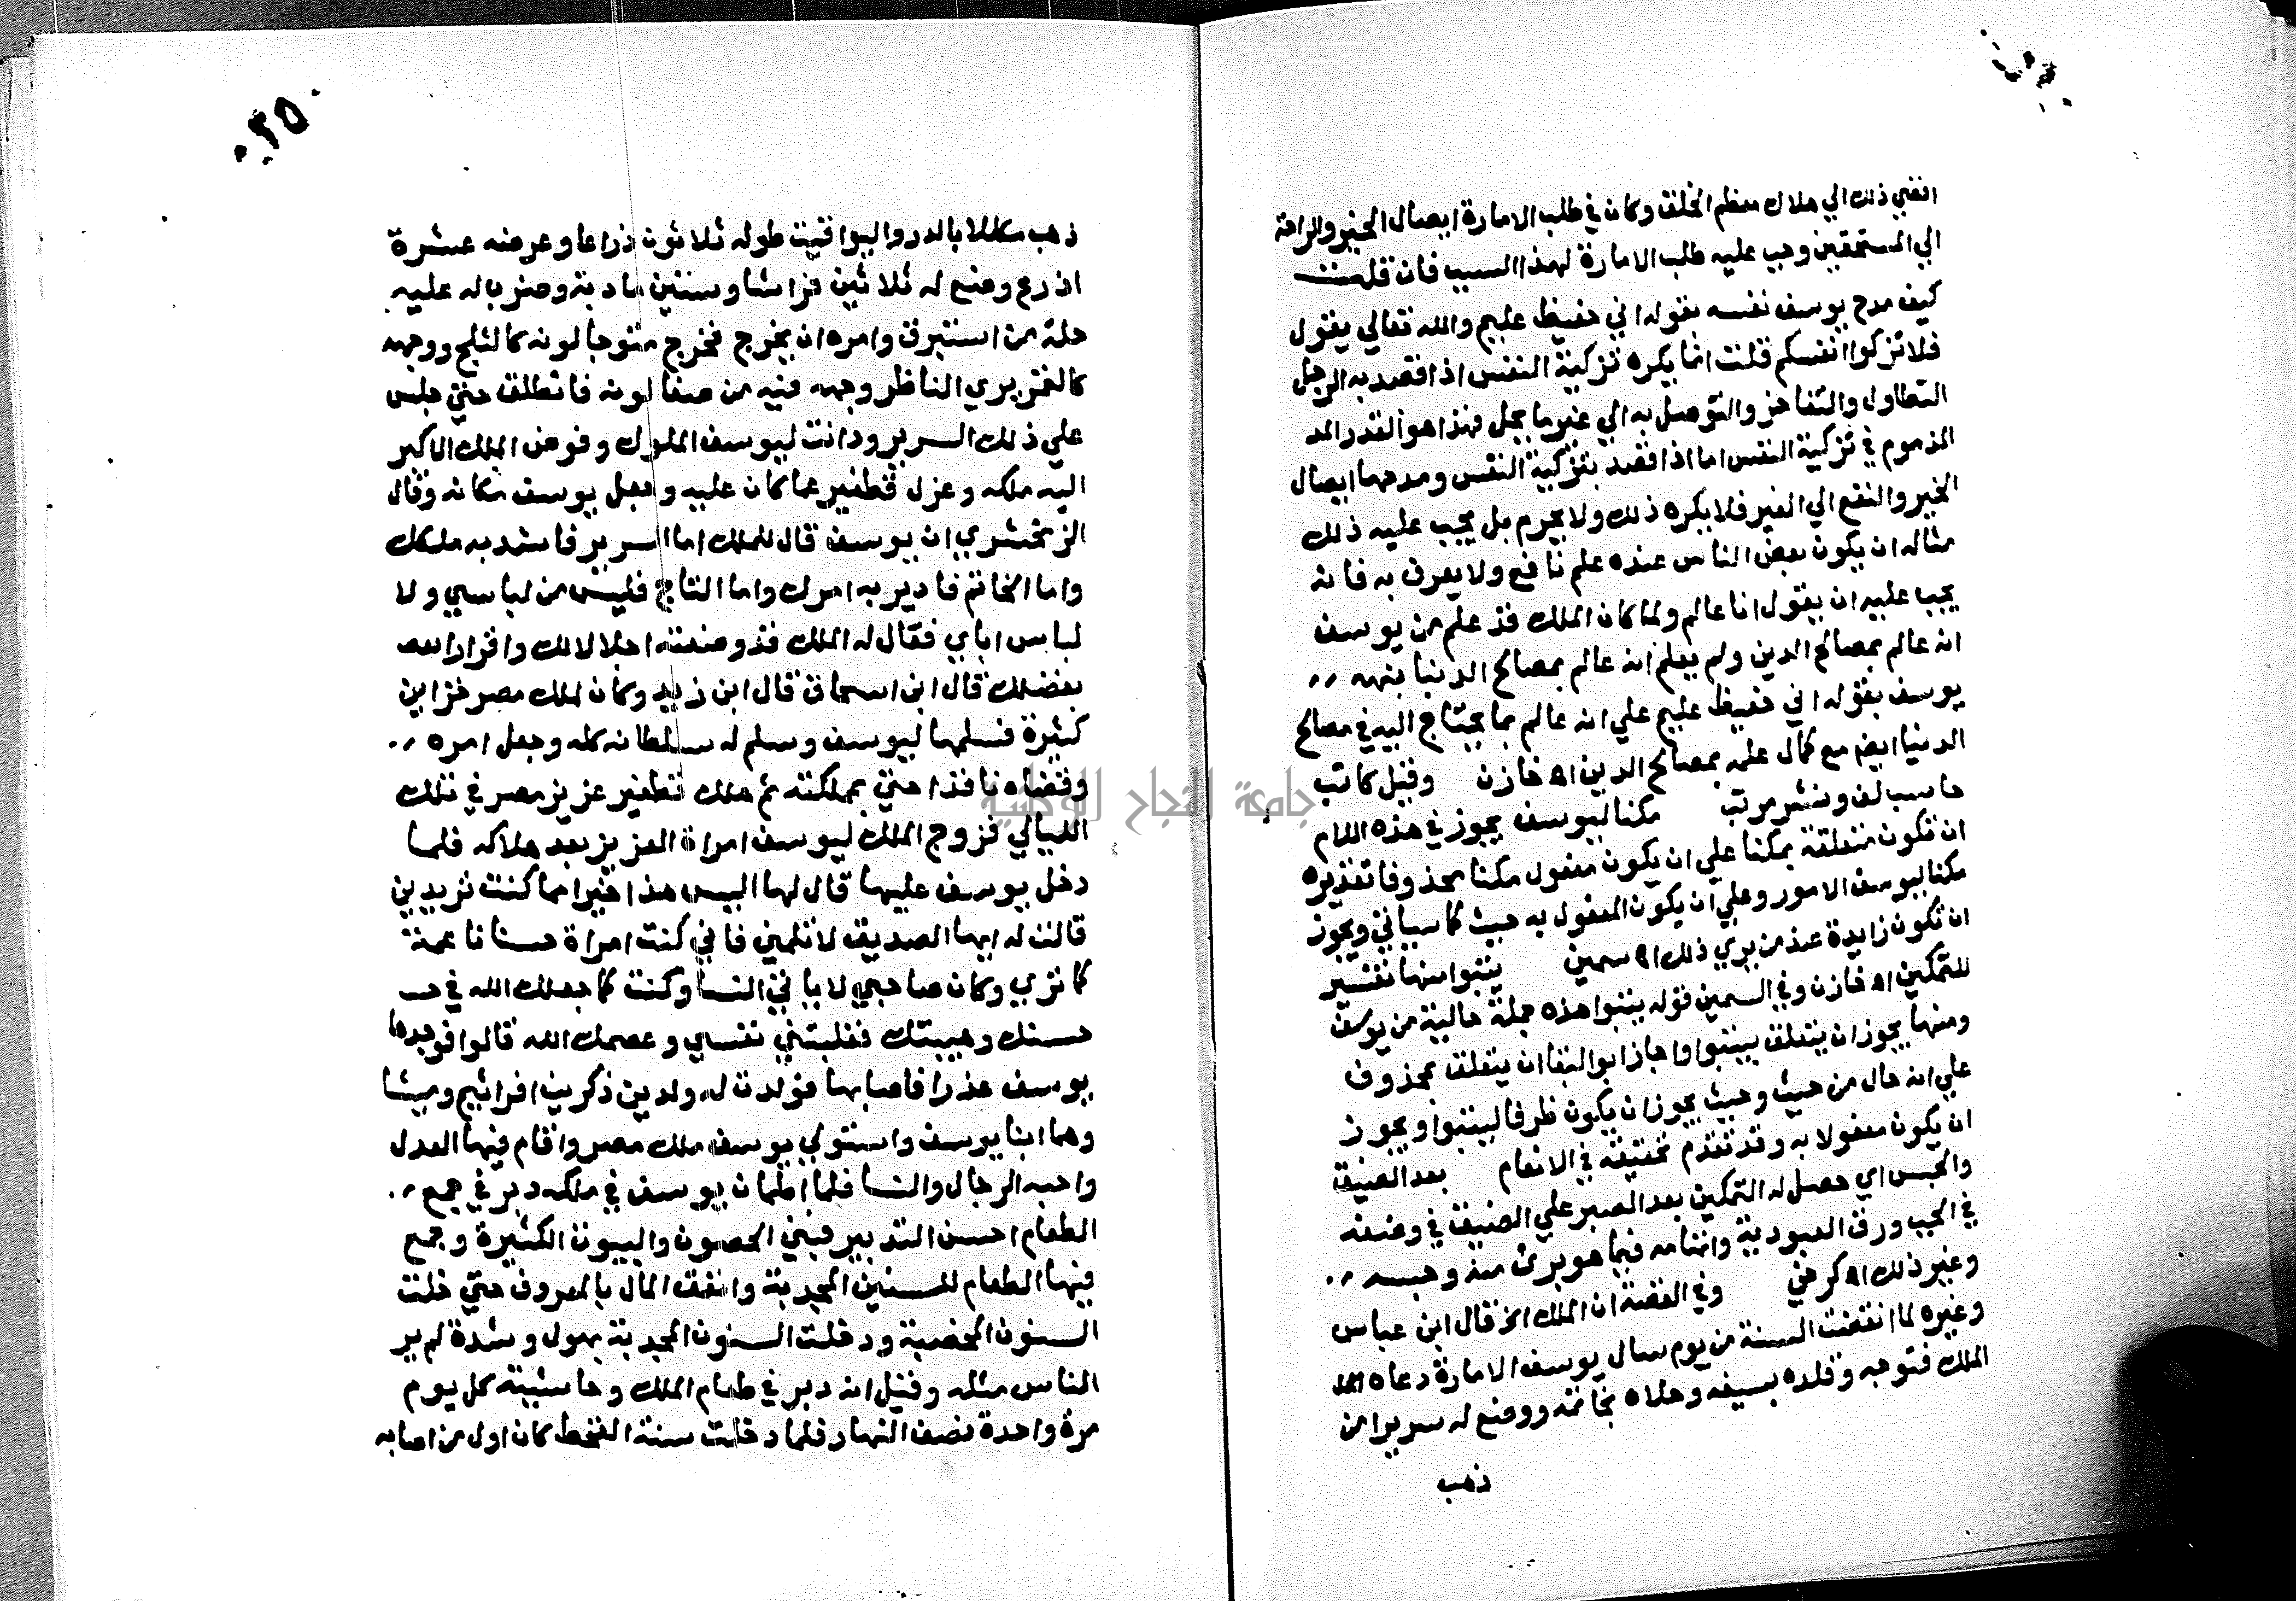 افضي ذلك الي هلاك معظم الخلق وكان في طلب الامارة ايصال الخير والراحة
الي المستحقين وجب عليه طلب الامارة لهذا السبب فان قلت
كيف مدح يوسف نفسه بقوله اني حفيظ عليم والله تعالي يقول
فلا تزكوا انفسكم قلت انما يكره تزكية النفس اذا قصد به الرجل
التطاول والتفاخر والتوصل به الي غير ما يحل فهذا هو القدر المذ
المذموم في تزكية النفس اما اذا قصد بتزكية النفس ومدحها ايصال
الخير والنفع الي الغير فلا يكره ذلك ولا يحرم بل يجب عليه ذلك
مثاله ان يكون بعض الناس عنده علم نافع ولا يعرف به فانه
يجب عليه ان يقول انا عالم ولما كان الملك قد علم من يوسف
انه عالم بمصالح الدين ولم يعلم انه عالم بمصالح الدنيا نبهه
يوسف بقوله اني حفيظ عليم علي انه عالم بما يحتاج اليه في مصالح
الدنيا ايضا مع كمال علمه بمصالح الدين اه خازن وقيل كاتب
حاسب لف ونشر مرتب مكنا ليوسف يجوز في هذه اللام
ان تكون متعلقة بمكنا علي ان يكون مفعول مكنا محذوفا تقديره
مكنا ليوسف الامور وعلي ان يكون المفعول به حيث كما سياتي ويجوز
ان تكون زايدة عند من يري ذلك اه سمين يتبوا منها تفسير
للتمكين اه خازن وفي السمين قوله يتبوا هذه جملة حالية من يوسف
ومنها يجوز ان يتعلق بيتبوا واجاز ابو البقا ان يتعلق بمحذوف
علي انه حال من حيث وحيث يجوز ان يكون ظرفا ليتبوا ويجوز
ان يكون مفعولا به وقد تقدم تحقيقه في الانعام بعد الضيق
والحبس اي حصل له التمكين بعد الصبر علي الضيق في وضعه
في الجب ورق العبودية واتهامه فيما هو برئ منه وحبسه
وغير ذلك اه كرخي وفي القصة ان الملك الخ قال ابن عباس
وغيره لما انقضت السنة من يوم سال يوسف الامارة دعاه الملك
الملك فتوجه وقلده بسيفه وحلاه بخاتمه ووضع له سريرا من
ذهب
٢٥
ذهب مكللا بالدر واليواقيت طوله ثلاثون ذراعا وعرضه عشرة
اذرع وصنع له ثلاثين فراشا وستين مادبة وضرب له عليه
حلة من استبرق وامره ان يخرج فخرج متوجا لونه كالثلج ووجهه
كالقمر يري الناظر وجهه فيه من صفا لونه فانطلق حتي جلس
علي ذلك السرير ودانت ليوسف الملوك وفوض الملك الاكبر
اليه ملكه وعزل قطفير عما كان عليه وجعل يوسف مكانه وقال
الزمخشري ان يوسف قال للملك اما السرير فاشد به ملكك
واما الخاتم فادير به امرك واما التاج فليس من لباسي ولا
لباس اباي فقال له الملك قد وضعته اجلالا لك واقرارا بعض
بفضلك قال ابن اسحاق قال ابن زيد وكان لملك مصر خزاين
كثيرة فسلمها ليوسف وسلم له سلطانه كله وجعل امره
وقضاه نافذا حتي بمملكته ثم هلك قطفير عزيز مصر في تلك
الليالي فزوج الملك ليوسف امراة العزيز بعد هلاكه فلما
دخل يوسف عليها قال لها اليس هذا خيرا مما كنت تريدين
قالت له ايها الصديق لا تلمني فاني كنت امراة حسنا ناعمة
كما تري وكان صاحبي لا ياتي النسا وكنت كما جعلك الله في حسـ
حسنك وهيبتك فغلبتني نفسي وعصمك الله قالوا فوجدها
يوسف عذرا فاصابها فولدت له ولدين ذكرين افراثيم وميشا
وهما ابنا يوسف واستولي يوسف ملك مصر واقام فيها العدل
واحبه الرجال والنسا فلما اطمان يوسف في ملكه دبر في جمع
الطعام احسن التدبير فبني الحصون والبيوت الكثيرة وجمع
فيها الطعام للسنين المجدبة وانفق المال بالمعروف حتي خلت
السنون المخصبة ودخلت السنون المجدبة بهول وشدة لم ير
الناس مثله وقيل انه دبر في طعام الملك وحاشيته كل يوم
مرة واحدة نصف النهار فلما دخلت سنة القحط كان اول من اصابه
جامعة النجاح الوطنية